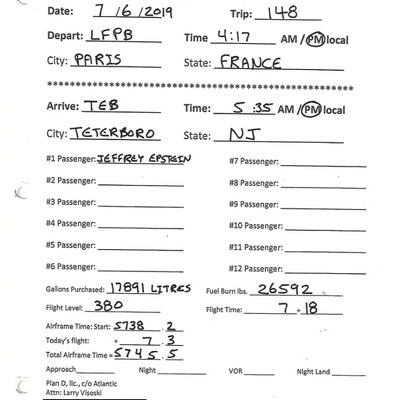 Date: 7/6/2019 Trip: 148
Depart: LFPB Time 4:17 AM / PM local
City: PARIS State: FRANCE
************************************************************
Arrive: TEB Time: 5:35 AM / PM local
City: TETERBORO State: NJ
#1 Passenger: JEFFREY EPSTEIN #7 Passenger:
#2 Passenger: #8 Passenger:
#3 Passenger: #9 Passenger:
#4 Passenger: #10 Passenger:
#5 Passenger: #11 Passenger:
#6 Passenger: #12 Passenger:
Gallons Purchased: 17891 LITRES Fuel Burn lbs. 26592
Flight Level: 380 Flight Time: 7 + 18
Airframe Time: Start: 5738 . 2
Today's flight: + 7 . 3
Total Airframe Time = 5745 . 5
Approach Night VOR Night Land
Plan D, llc., c/o Atlantic
Attn: Larry Visoski